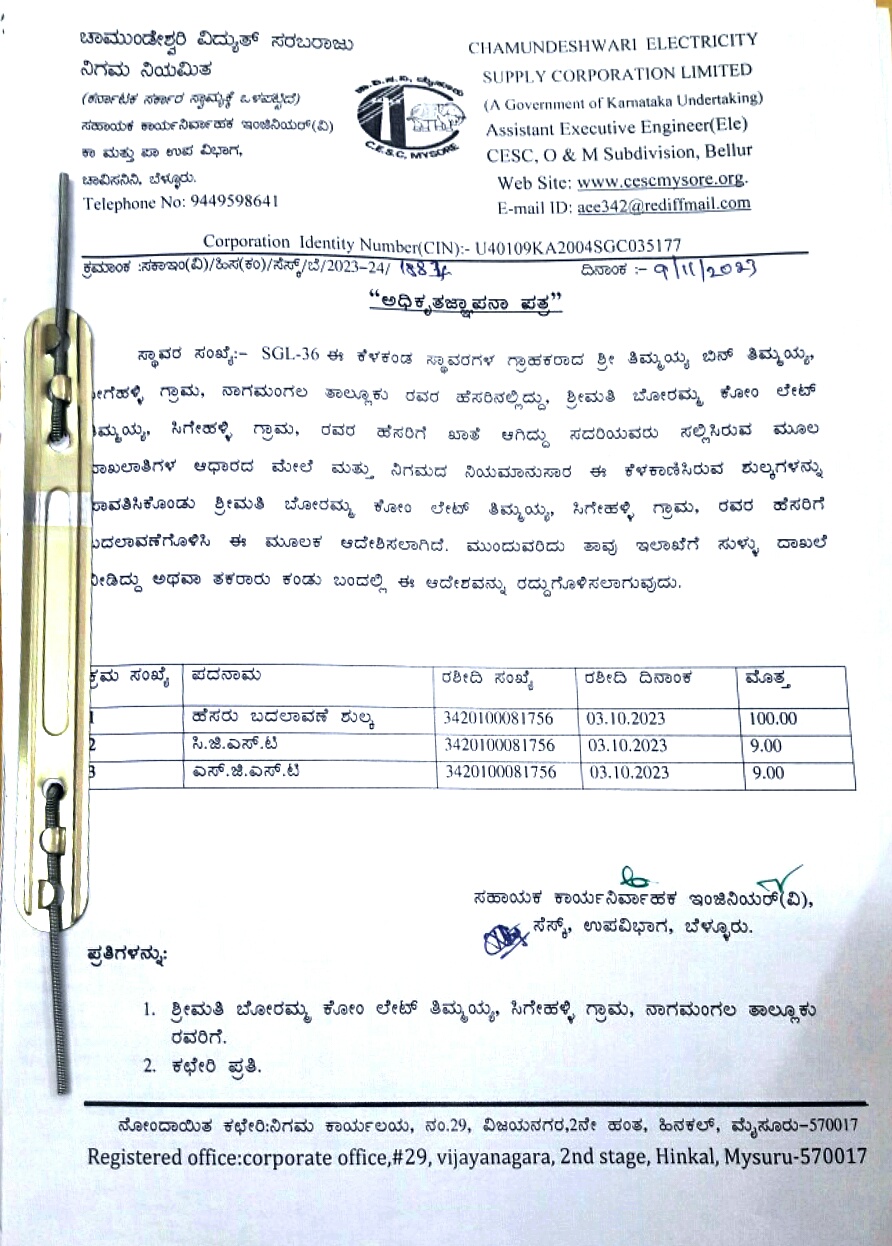 ಚಾಮುಂಡೇಶ್ವರಿ ವಿದ್ಯುತ್ ಸರಬರಾಜು
ನಿಗಮ ನಿಯಮಿತ
(ಕರ್ನಾಟಕ ಸರ್ಕಾರ ಸ್ವಾಮ್ಯಕ್ಕೆ ಒಳಪಟ್ಟಿದೆ)
ಸಹಾಯಕ ಕಾರ್ಯನಿರ್ವಾಹಕ ಇಂಜಿನಿಯರ್(ವಿ)
ಕಾ ಮತ್ತು ಪಾ ಉಪ ವಿಭಾಗ,
ಚಾವಿಸನಿನಿ, ಬೆಳ್ಳೂರು.
Telephone No: 9449598641
C.E.S.C, MYSORE
CHAMUNDESHWARI ELECTRICITY
SUPPLY CORPORATION LIMITED
(A Government of Karnataka Undertaking)
Assistant Executive Engineer(Ele)
CESC, O & M Subdivision, Bellur
Web Site: www.cescmysore.org.
E-mail ID: aee342@rediffmail.com
Corporation Identity Number(CIN):- U40109KA2004SGC035177
ಕ್ರಮಾಂಕ :ಸಕಾಇಂ(ವಿ)/ಹಿಸ(ಕಂ)/ಸೆಸ್ಕ್/ಬೆ/2023-24/ ದಿನಾಂಕ :- 9/11/2023
"ಅಧಿಕೃತಜ್ಞಾಪನಾ ಪತ್ರ"
ಸ್ಥಾವರ ಸಂಖ್ಯೆ:- SGL-36 ಈ ಕೆಳಕಂಡ ಸ್ಥಾವರಗಳ ಗ್ರಾಹಕರಾದ ಶ್ರೀ ತಿಮ್ಮಯ್ಯ ಬಿನ್ ತಿಮ್ಮಯ್ಯ,
ಗೆಹಳ್ಳಿ ಗ್ರಾಮ, ನಾಗಮಂಗಲ ತಾಲ್ಲೂಕು ರವರ ಹೆಸರಿನಲ್ಲಿದ್ದು, ಶ್ರೀಮತಿ ಬೋರಮ್ಮ ಕೋಂ ಲೇಟ್
ಮ್ಮಯ್ಯ, ಸಿಗೇಹಳ್ಳಿ ಗ್ರಾಮ, ರವರ ಹೆಸರಿಗೆ ಖಾತೆ ಆಗಿದ್ದು ಸದರಿಯವರು ಸಲ್ಲಿಸಿರುವ ಮೂಲ
ಾಖಲಾತಿಗಳ ಆಧಾರದ ಮೇಲೆ ಮತ್ತು ನಿಗಮದ ನಿಯಮಾನುಸಾರ ಈ ಕೆಳಕಾಣಿಸಿರುವ ಶುಲ್ಕಗಳನ್ನು
ಾವತಿಸಿಕೊಂಡು ಶ್ರೀಮತಿ ಬೋರಮ್ಮ ಕೋಂ ಲೇಟ್ ತಿಮ್ಮಯ್ಯ, ಸಿಗೇಹಳ್ಳಿ ಗ್ರಾಮ, ರವರ ಹೆಸರಿಗೆ
ಬದಲಾವಣೆಗೊಳಿಸಿ ಈ ಮೂಲಕ ಆದೇಶಿಸಲಾಗಿದೆ. ಮುಂದುವರಿದು ತಾವು ಇಲಾಖೆಗೆ ಸುಳ್ಳು ದಾಖಲೆ
ೀಡಿದ್ದು ಅಥವಾ ತಕರಾರು ಕಂಡು ಬಂದಲ್ಲಿ ಈ ಆದೇಶವನ್ನು ರದ್ದುಗೊಳಿಸಲಾಗುವುದು.
ಕ್ರಮ ಸಂಖ್ಯೆ ಪದನಾಮ ರಶೀದಿ ಸಂಖ್ಯೆ ರಶೀದಿ ದಿನಾಂಕ ಮೊತ್ತ
1 ಹೆಸರು ಬದಲಾವಣೆ ಶುಲ್ಕ 3420100081756 03.10.2023 100.00
2 ಸಿ.ಜಿ.ಎಸ್.ಟಿ 3420100081756 03.10.2023 9.00
3 ಎಸ್.ಜಿ.ಎಸ್.ಟಿ 3420100081756 03.10.2023 9.00
ಸಹಾಯಕ ಕಾರ್ಯನಿರ್ವಾಹಕ ಇಂಜಿನಿಯರ್(ವಿ),
ಸೆಸ್ಕ್, ಉಪವಿಭಾಗ, ಬೆಳ್ಳೂರು.
ಪ್ರತಿಗಳನ್ನು:
1. ಶ್ರೀಮತಿ ಬೋರಮ್ಮ ಕೋಂ ಲೇಟ್ ತಿಮ್ಮಯ್ಯ, ಸಿಗೇಹಳ್ಳಿ ಗ್ರಾಮ, ನಾಗಮಂಗಲ ತಾಲ್ಲೂಕು
ರವರಿಗೆ.
2. ಕಛೇರಿ ಪ್ರತಿ.
ನೋಂದಾಯಿತ ಕಛೇರಿ:ನಿಗಮ ಕಾರ್ಯಲಯ, ನಂ.29, ವಿಜಯನಗರ,2ನೇ ಹಂತ, ಹಿನಕಲ್, ಮೈಸೂರು-570017
Registered office:corporate office,#29, vijayanagara, 2nd stage, Hinkal, Mysuru-570017